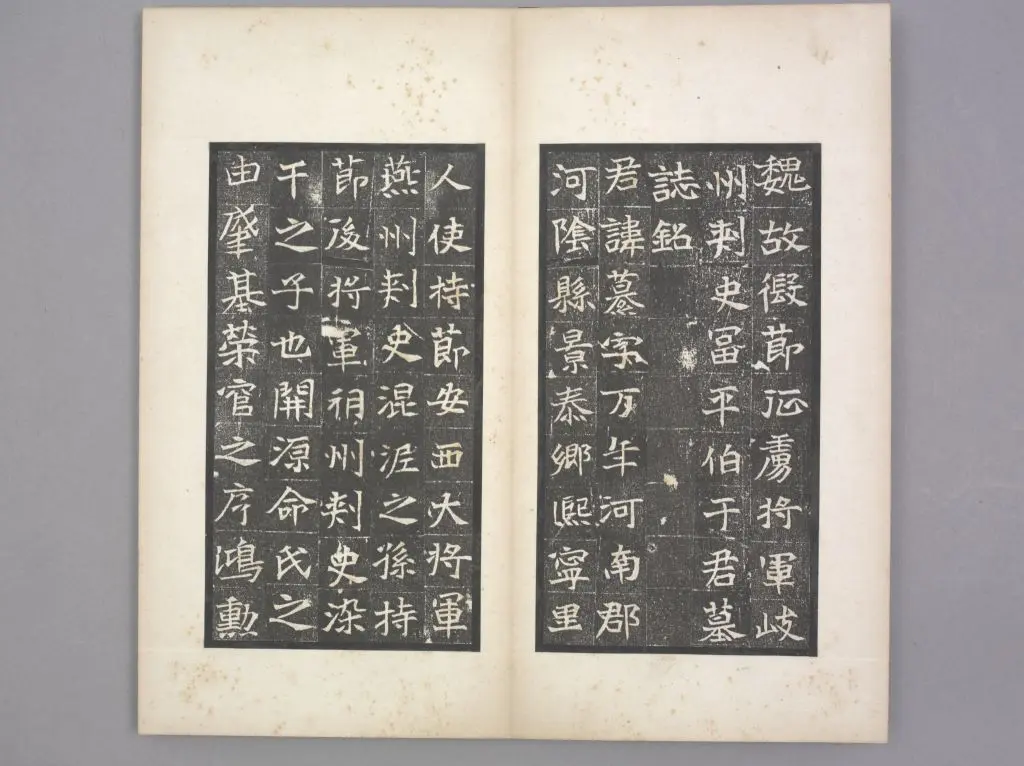 魏故假節征虜將軍岐
州刺史冨平伯于君墓
誌銘
君諱纂字万年河南郡
河陰縣景泰鄉熙寧里
人使持節安西大將軍
燕州刺史混泥之孫持
節後將軍朔州刺史染
干之子也開源命氏之
由肇基榮官之序鴻勳